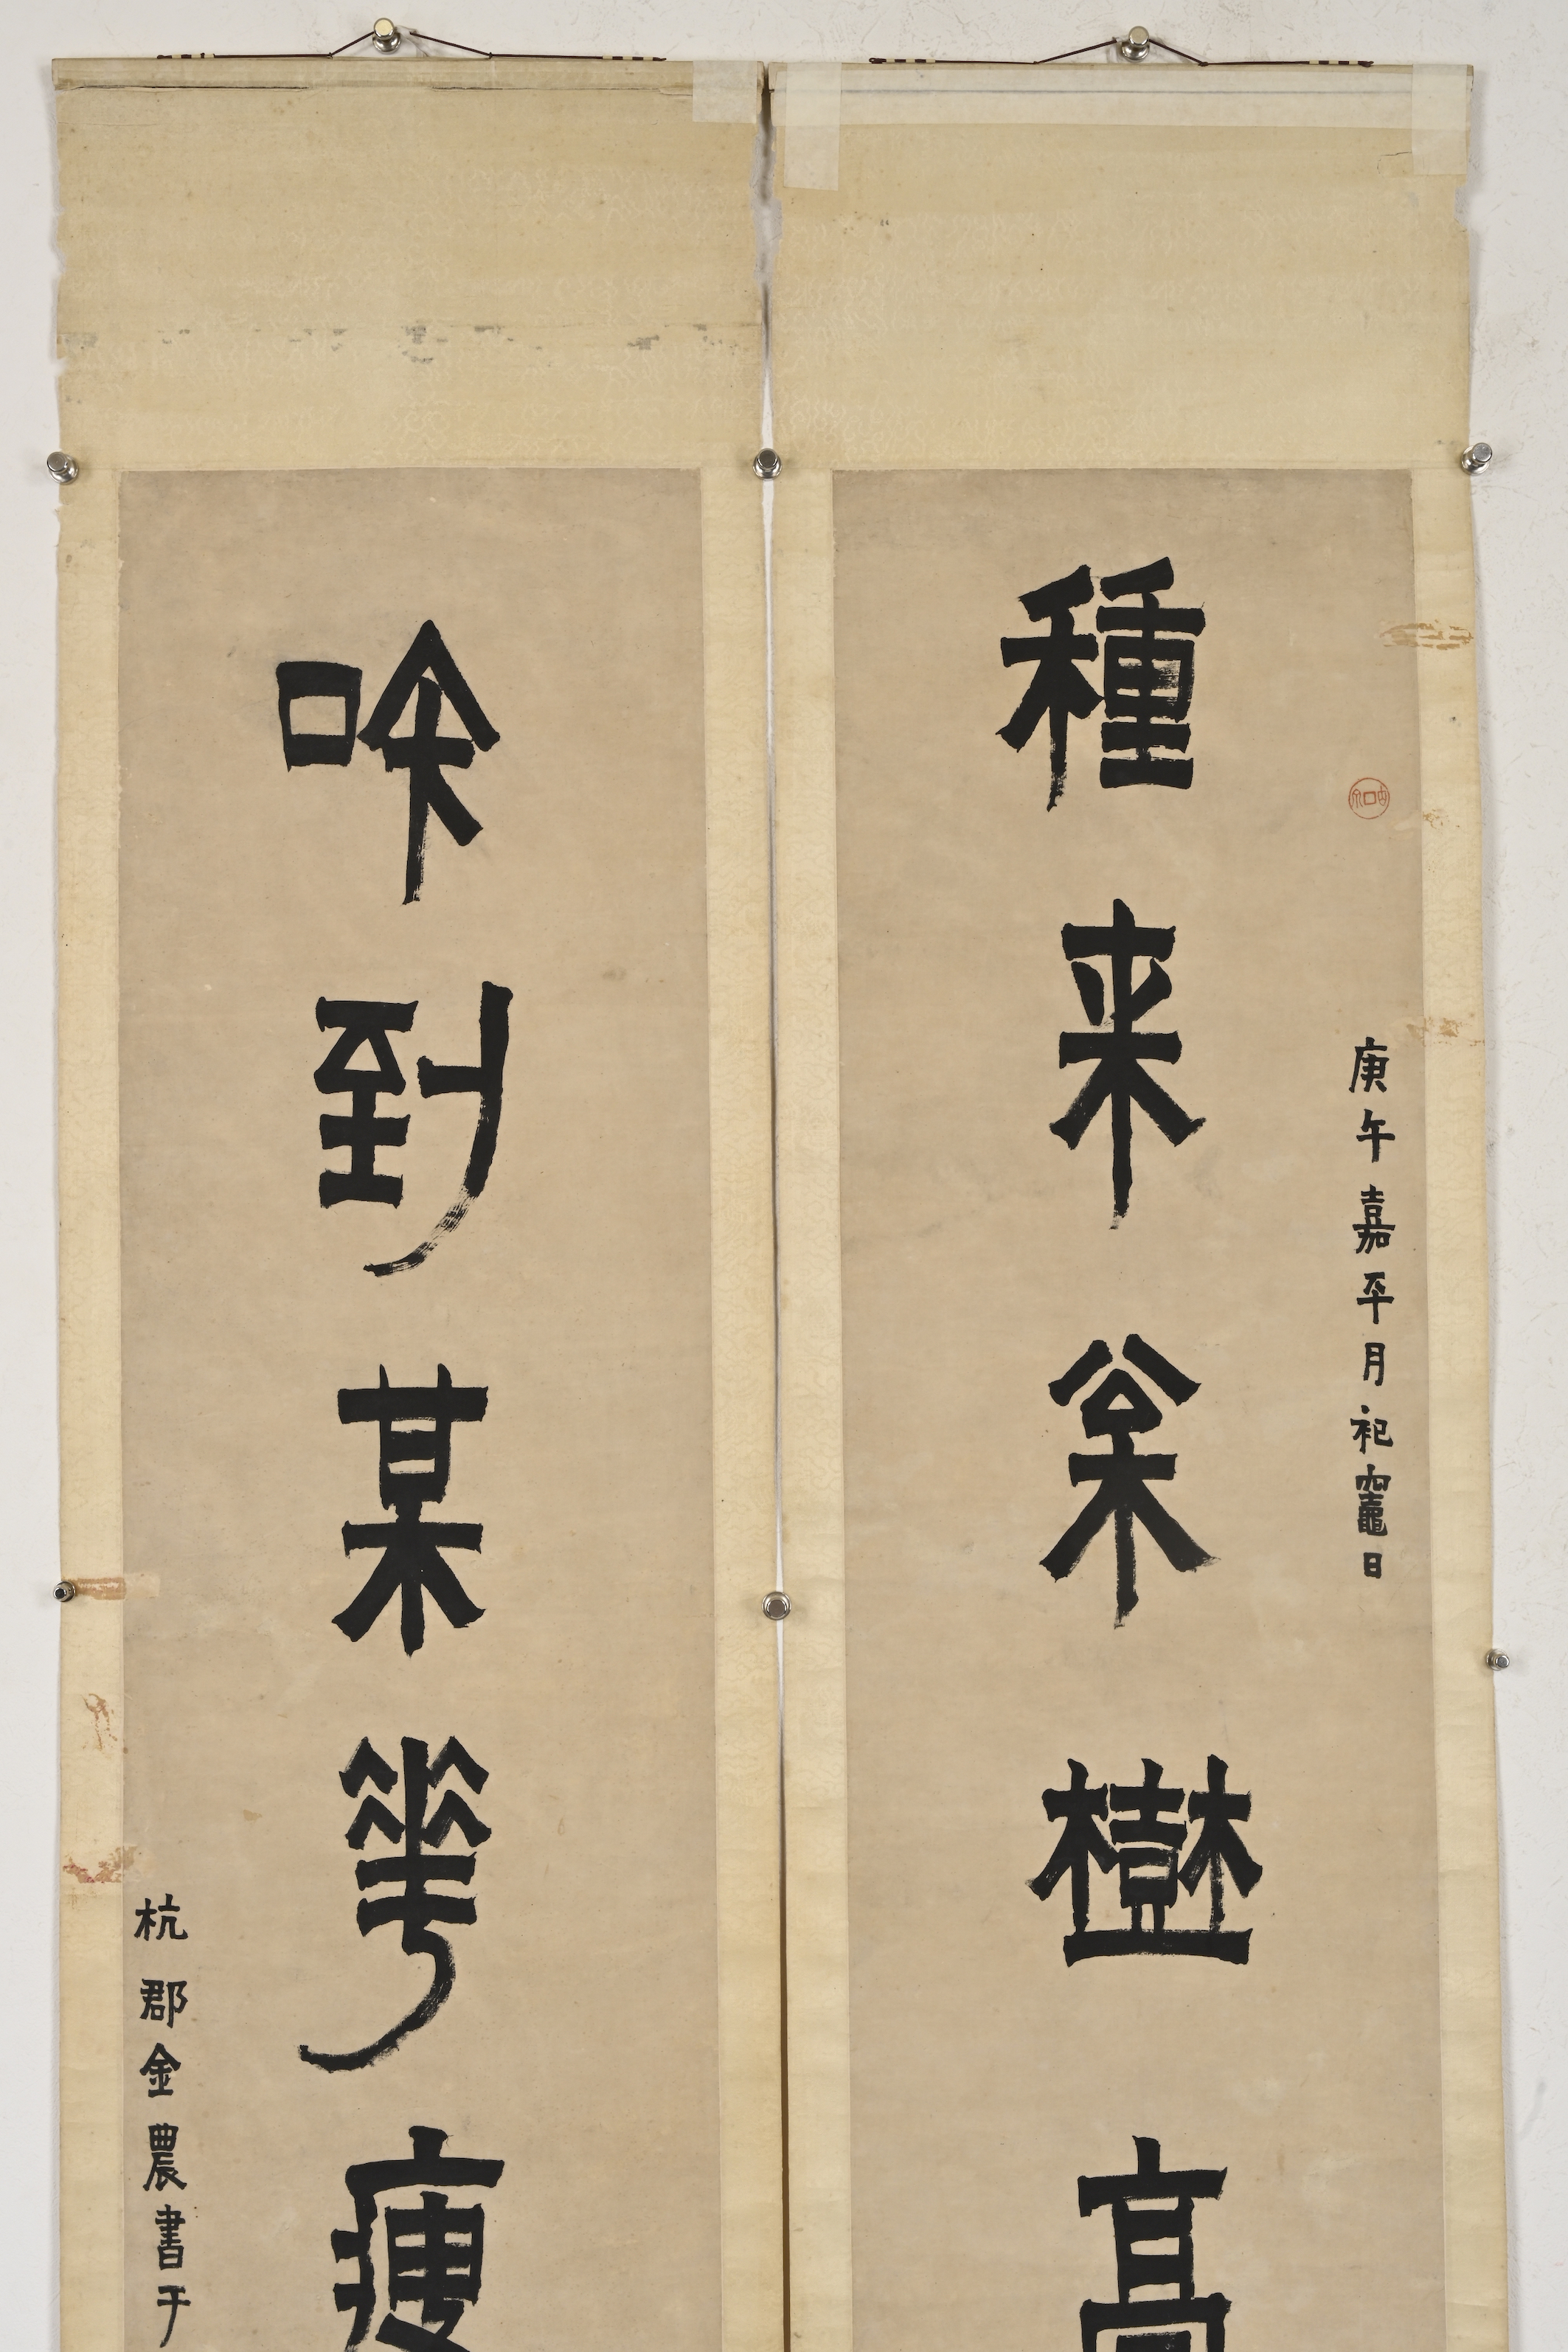 庚午嘉平月祀竈日
種来枀樹高
吟到某華瘦
杭郡金農書于